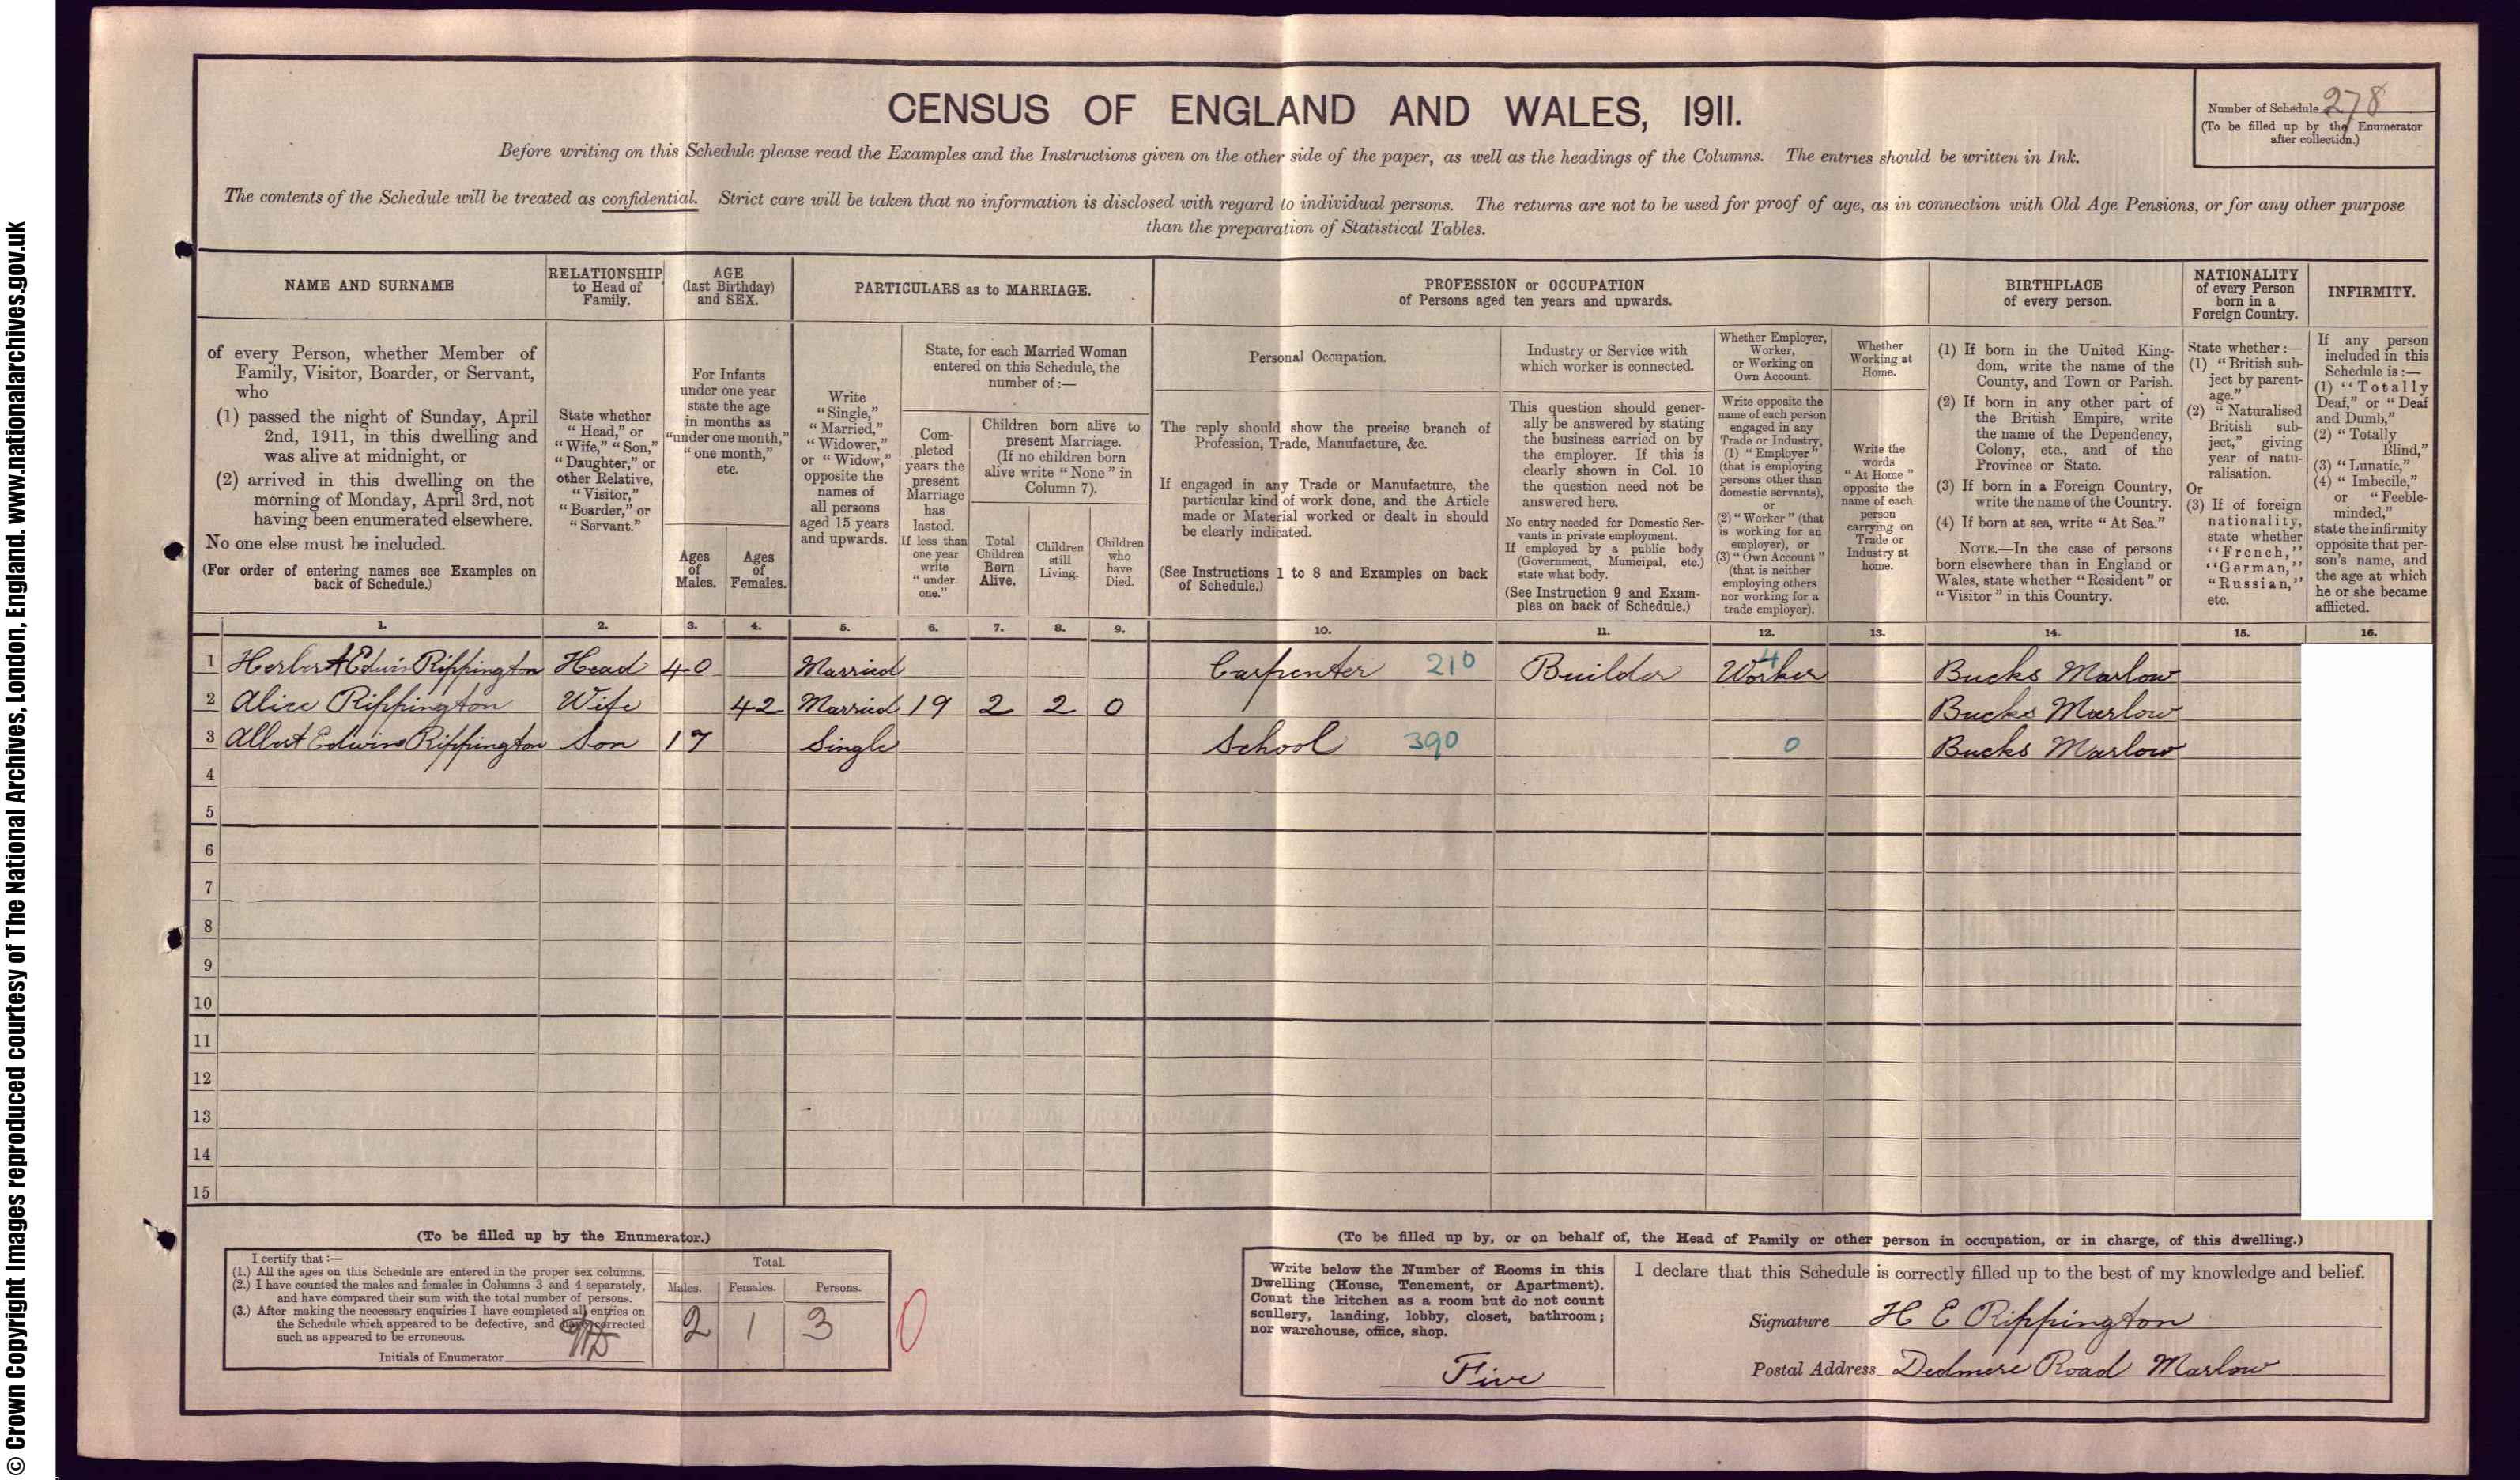 © Crown Copyright Images reproduced courtesy of The National Archives, London, England. www.nationalarchives.gov.uk
CENSUS OF ENGLAND AND WALES, 1911.
Number of Schedule 278
(To be filled up by the Enumerator
after collection.)
Before writing on this Schedule please read the Examples and the Instructions given on the other side of the paper, as well as the headings of the Columns. The entries should be written in Ink.
The contents of the Schedule will be treated as confidential. Strict care will be taken that no information is disclosed with regard to individual persons. The returns are not to be used for proof of age, as in connection with Old Age Pensions, or for any other purpose
than the preparation of Statistical Tables.
NAME AND SURNAME
of every Person, whether Member of
Family, Visitor, Boarder, or Servant,
who
(1) passed the night of Sunday, April
2nd, 1911, in this dwelling and
was alive at midnight, or
(2) arrived in this dwelling on the
morning of Monday, April 3rd, not
having been enumerated elsewhere.
No one else must be included.
(For order of entering names see Examples on
back of Schedule.)
RELATIONSHIP
to Head of
Family.
State whether
"Head," or
"Wife," "Son,"
"Daughter," or
other Relative,
"Visitor,"
"Boarder," or
"Servant."
AGE
(last Birthday)
and SEX.
For Infants
under one year
state the age
in months as
"under one month,"
"one month,"
etc.
Ages
of
Males.
Ages
of
Females.
PARTICULARS as to MARRIAGE.
Write
"Single,"
"Married,"
"Widower,"
or "Widow,"
opposite the
names of
all persons
aged 15 years
and upwards.
State, for each Married Woman
entered on this Schedule, the
number of:—
Com-
pleted
years the
present
Marriage
has
lasted.
If less than
one year
write
"under
one."
Children born alive to
present Marriage.
(If no children born
alive write "None" in
Column 7).
Total
Children
Born
Alive.
Children
still
Living.
Children
who
have
Died.
PROFESSION or OCCUPATION
of Persons aged ten years and upwards.
Personal Occupation.
The reply should show the precise branch of
Profession, Trade, Manufacture, &c.
If engaged in any Trade or Manufacture, the
particular kind of work done, and the Article
made or Material worked or dealt in should
be clearly indicated.
(See Instructions 1 to 8 and Examples on back
of Schedule.)
Industry or Service with
which worker is connected.
This question should gener-
ally be answered by stating
the business carried on by
the employer. If this is
clearly shown in Col. 10
the question need not be
answered here.
No entry needed for Domestic Ser-
vants in private employment.
If employed by a public body
(Government, Municipal, etc.)
state what body.
(See Instruction 9 and Exam-
ples on back of Schedule.)
Whether Employer,
Worker,
or Working on
Own Account.
Write opposite the
name of each person
engaged in any
Trade or Industry,
(1) "Employer"
(that is employing
persons other than
domestic servants),
or
(2) "Worker" (that
is working for an
employer), or
(3) "Own Account"
(that is neither
employing others
nor working for a
trade employer).
Whether
Working at
Home.
Write the
words
"At Home"
opposite the
name of each
person
carrying on
Trade or
Industry at
home.
BIRTHPLACE
of every person.
(1) If born in the United King-
dom, write the name of the
County, and Town or Parish.
(2) If born in any other part of
the British Empire, write
the name of the Dependency,
Colony, etc., and of the
Province or State.
(3) If born in a Foreign Country,
write the name of the Country.
(4) If born at sea, write "At Sea."
NOTE.—In the case of persons
born elsewhere than in England or
Wales, state whether "Resident" or
"Visitor" in this Country.
NATIONALITY
of every Person
born in a
Foreign Country.
State whether:—
(1) "British sub-
ject by parent-
age."
(2) "Naturalised
British sub-
ject," giving
year of natu-
ralisation.
Or
(3) If of foreign
nationality,
state whether
"French,"
"German,"
"Russian,"
etc.
INFIRMITY.
If any person
included in this
Schedule is:—
(1) "Totally
Deaf," or "Deaf
and Dumb,"
(2) "Totally
Blind,"
(3) "Lunatic,"
(4) "Imbecile,"
or "Feeble-
minded,"
state the infirmity
opposite that per-
son's name, and
the age at which
he or she became
afflicted.
1. 2. 3. 4. 5. 6. 7. 8. 9. 10. 11. 12. 13. 14. 15. 16.
1 Herbert Edwin Rippington Head 40 Married Carpenter 210 Builder Worker 4 Bucks Marlow
2 Alice Rippington Wife 42 Married 19 2 2 0 Bucks Marlow
3 Albert Edwin Rippington Son 17 Single School 390 0 Bucks Marlow
4
5
6
7
8
9
10
11
12
13
14
15
(To be filled up by the Enumerator.)
I certify that:—
(1.) All the ages on this Schedule are entered in the proper sex columns.
(2.) I have counted the males and females in Columns 3 and 4 separately,
and have compared their sum with the total number of persons.
(3.) After making the necessary enquiries I have completed all entries on
the Schedule which appeared to be defective, and have corrected
such as appeared to be erroneous.
Initials of Enumerator
Total.
Males. Females. Persons.
2 1 3
0
(To be filled up by, or on behalf of, the Head of Family or other person in occupation, or in charge, of this dwelling.)
Write below the Number of Rooms in this
Dwelling (House, Tenement, or Apartment).
Count the kitchen as a room but do not count
scullery, landing, lobby, closet, bathroom;
nor warehouse, office, shop.
Five
I declare that this Schedule is correctly filled up to the best of my knowledge and belief.
Signature H E Rippington
Postal Address Dedmere Road Marlow